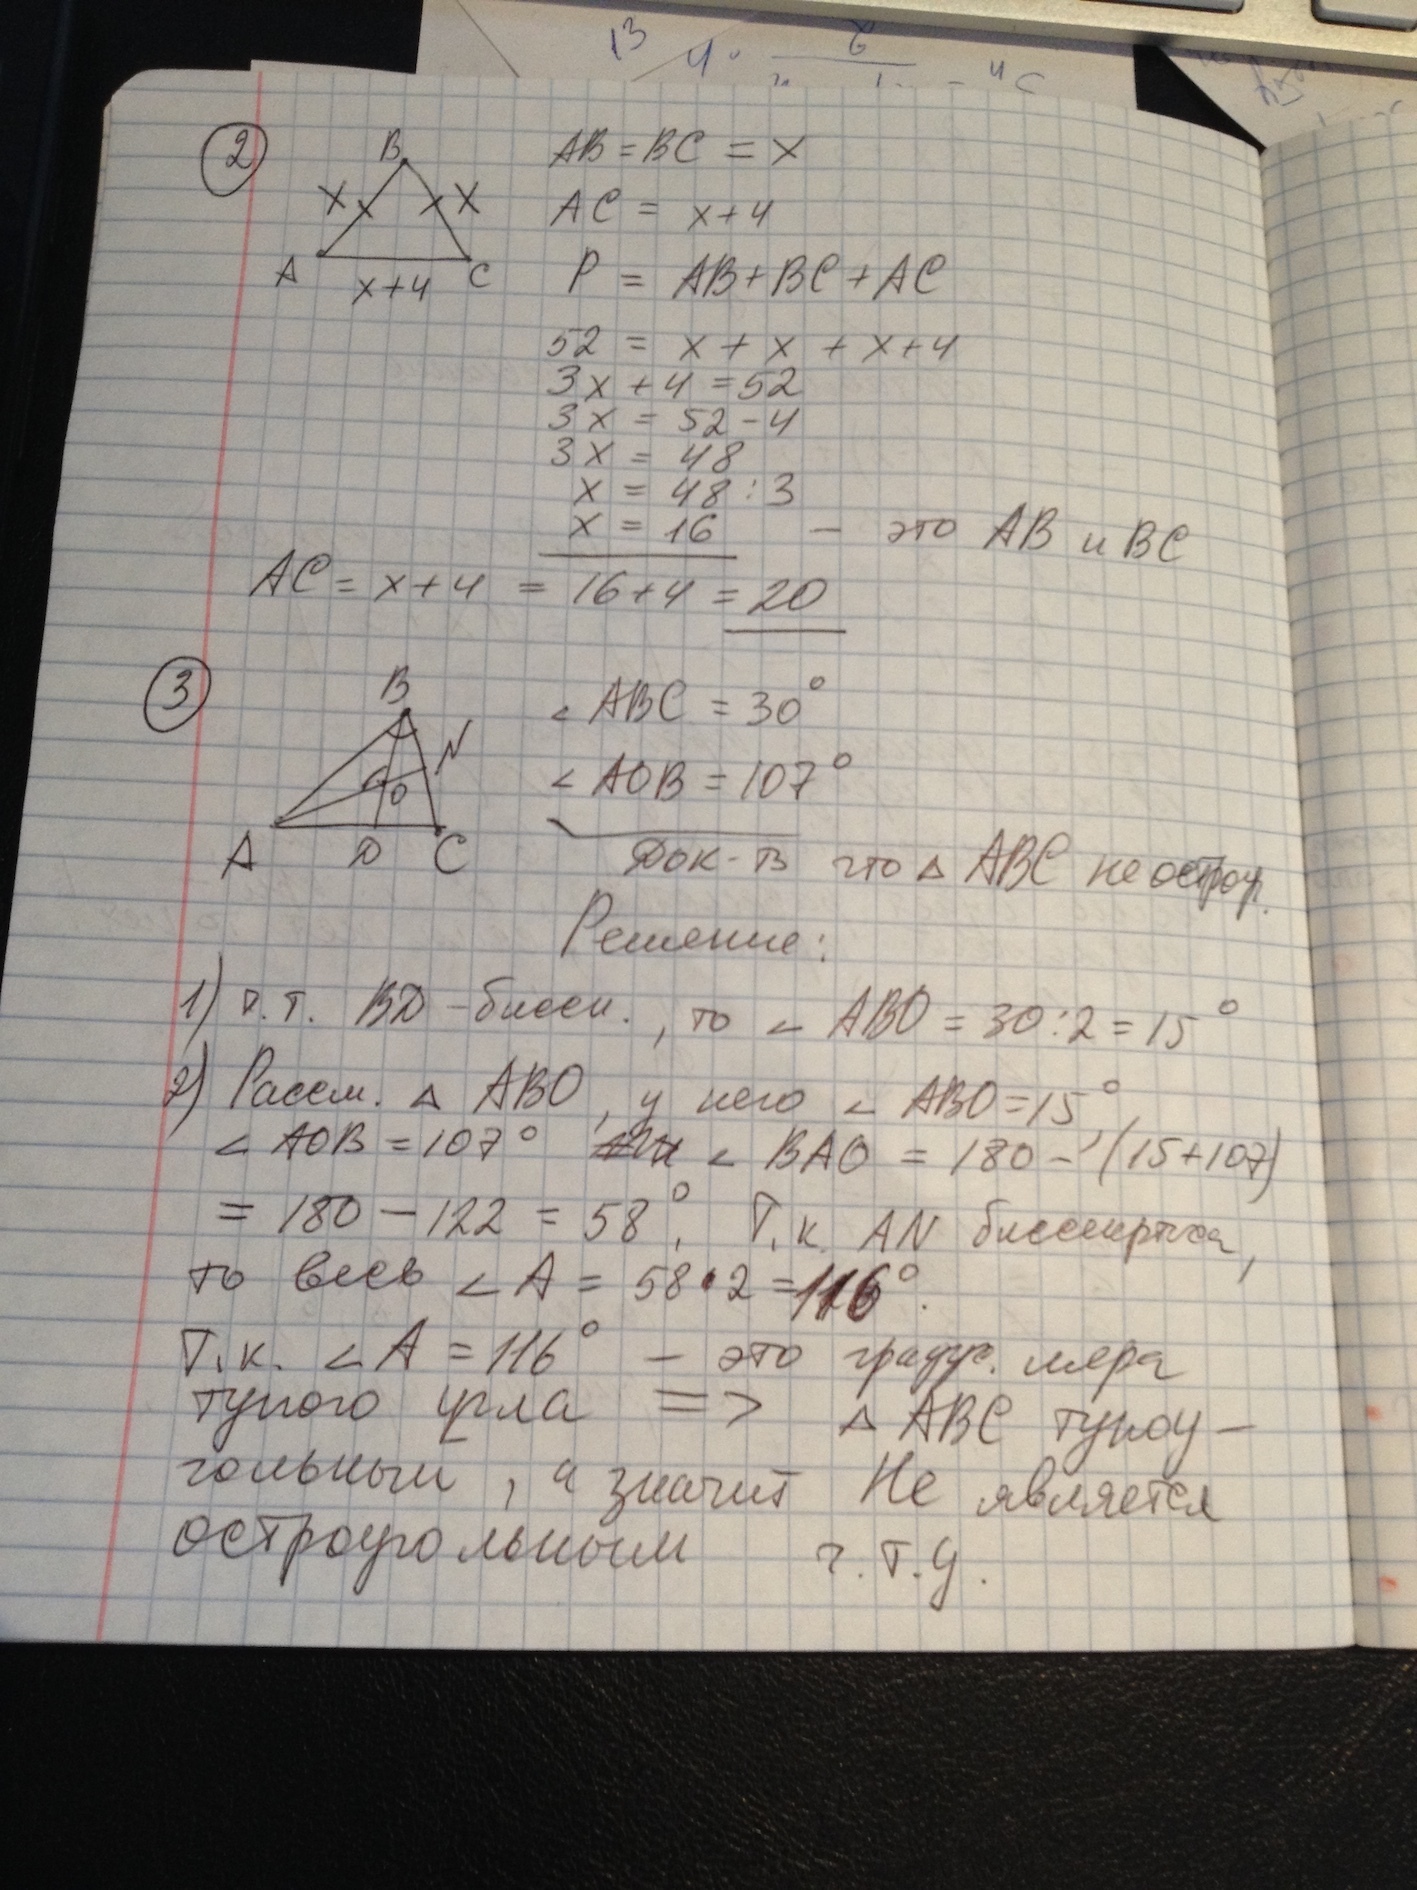 2
B
AB = BC = x
x x
AC = x+4
A C
x+4
P = AB+BC+AC
52 = x + x + x+4
3x + 4 = 52
3x = 52 - 4
3x = 48
x = 48 : 3
x = 16 - это AB и BC
AC = x+4 = 16+4 = 20
3
B
∠ ABC = 30°
N
O
∠ AOB = 107°
A D C
Док-ть что △ ABC не остроуг.
Решение:
1) т.т. BD - бисси., то ∠ ABO = 30:2 = 15°
2) Рассм. △ ABO, у него ∠ ABO = 15°,
∠ AOB = 107° ∠ BAO = 180 - (15+107)
= 180 - 122 = 58°. Т.к. AN биссектриса,
то весь ∠ A = 58•2 = 116°.
Т.к. ∠ A = 116° - это градус. мера
тупого угла => △ ABC тупоу-
гольный, а значит Не является
остроугольным ч.т.д.